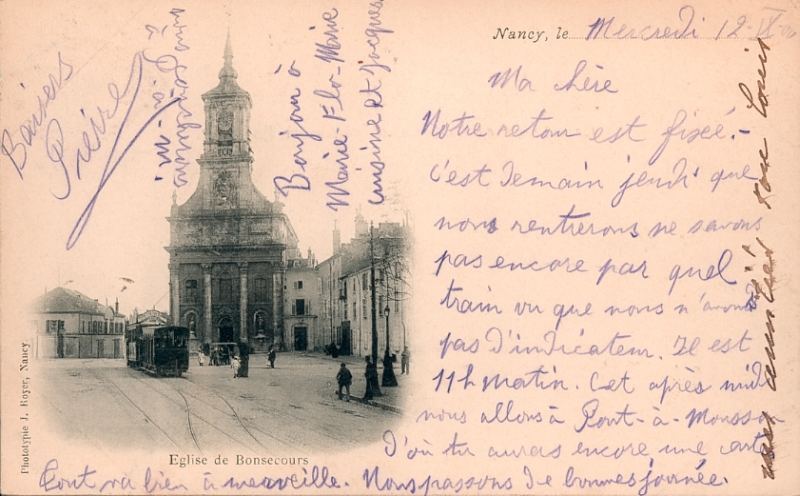 Nancy, le Mercredi 12-IX-
Ma chère
Notre retour est fixé.-
C'est Demain jeudi que
nous rentrerons ne savons
pas encore par quel
train vu que nous n'avons
pas d'indicateur. Il est
11h Matin. Cet après midi
nous allons à Pont-à-Mousson
D'où tu auras encore une carte
Tout va bien à merveille. Nous passons De bonnes journée.
Baisers
Pierre
Bonjour à
Marie-Flo-Marie
cuisine et Jacques
Eglise de Bonsecours
Phototypie J. Royer, Nancy